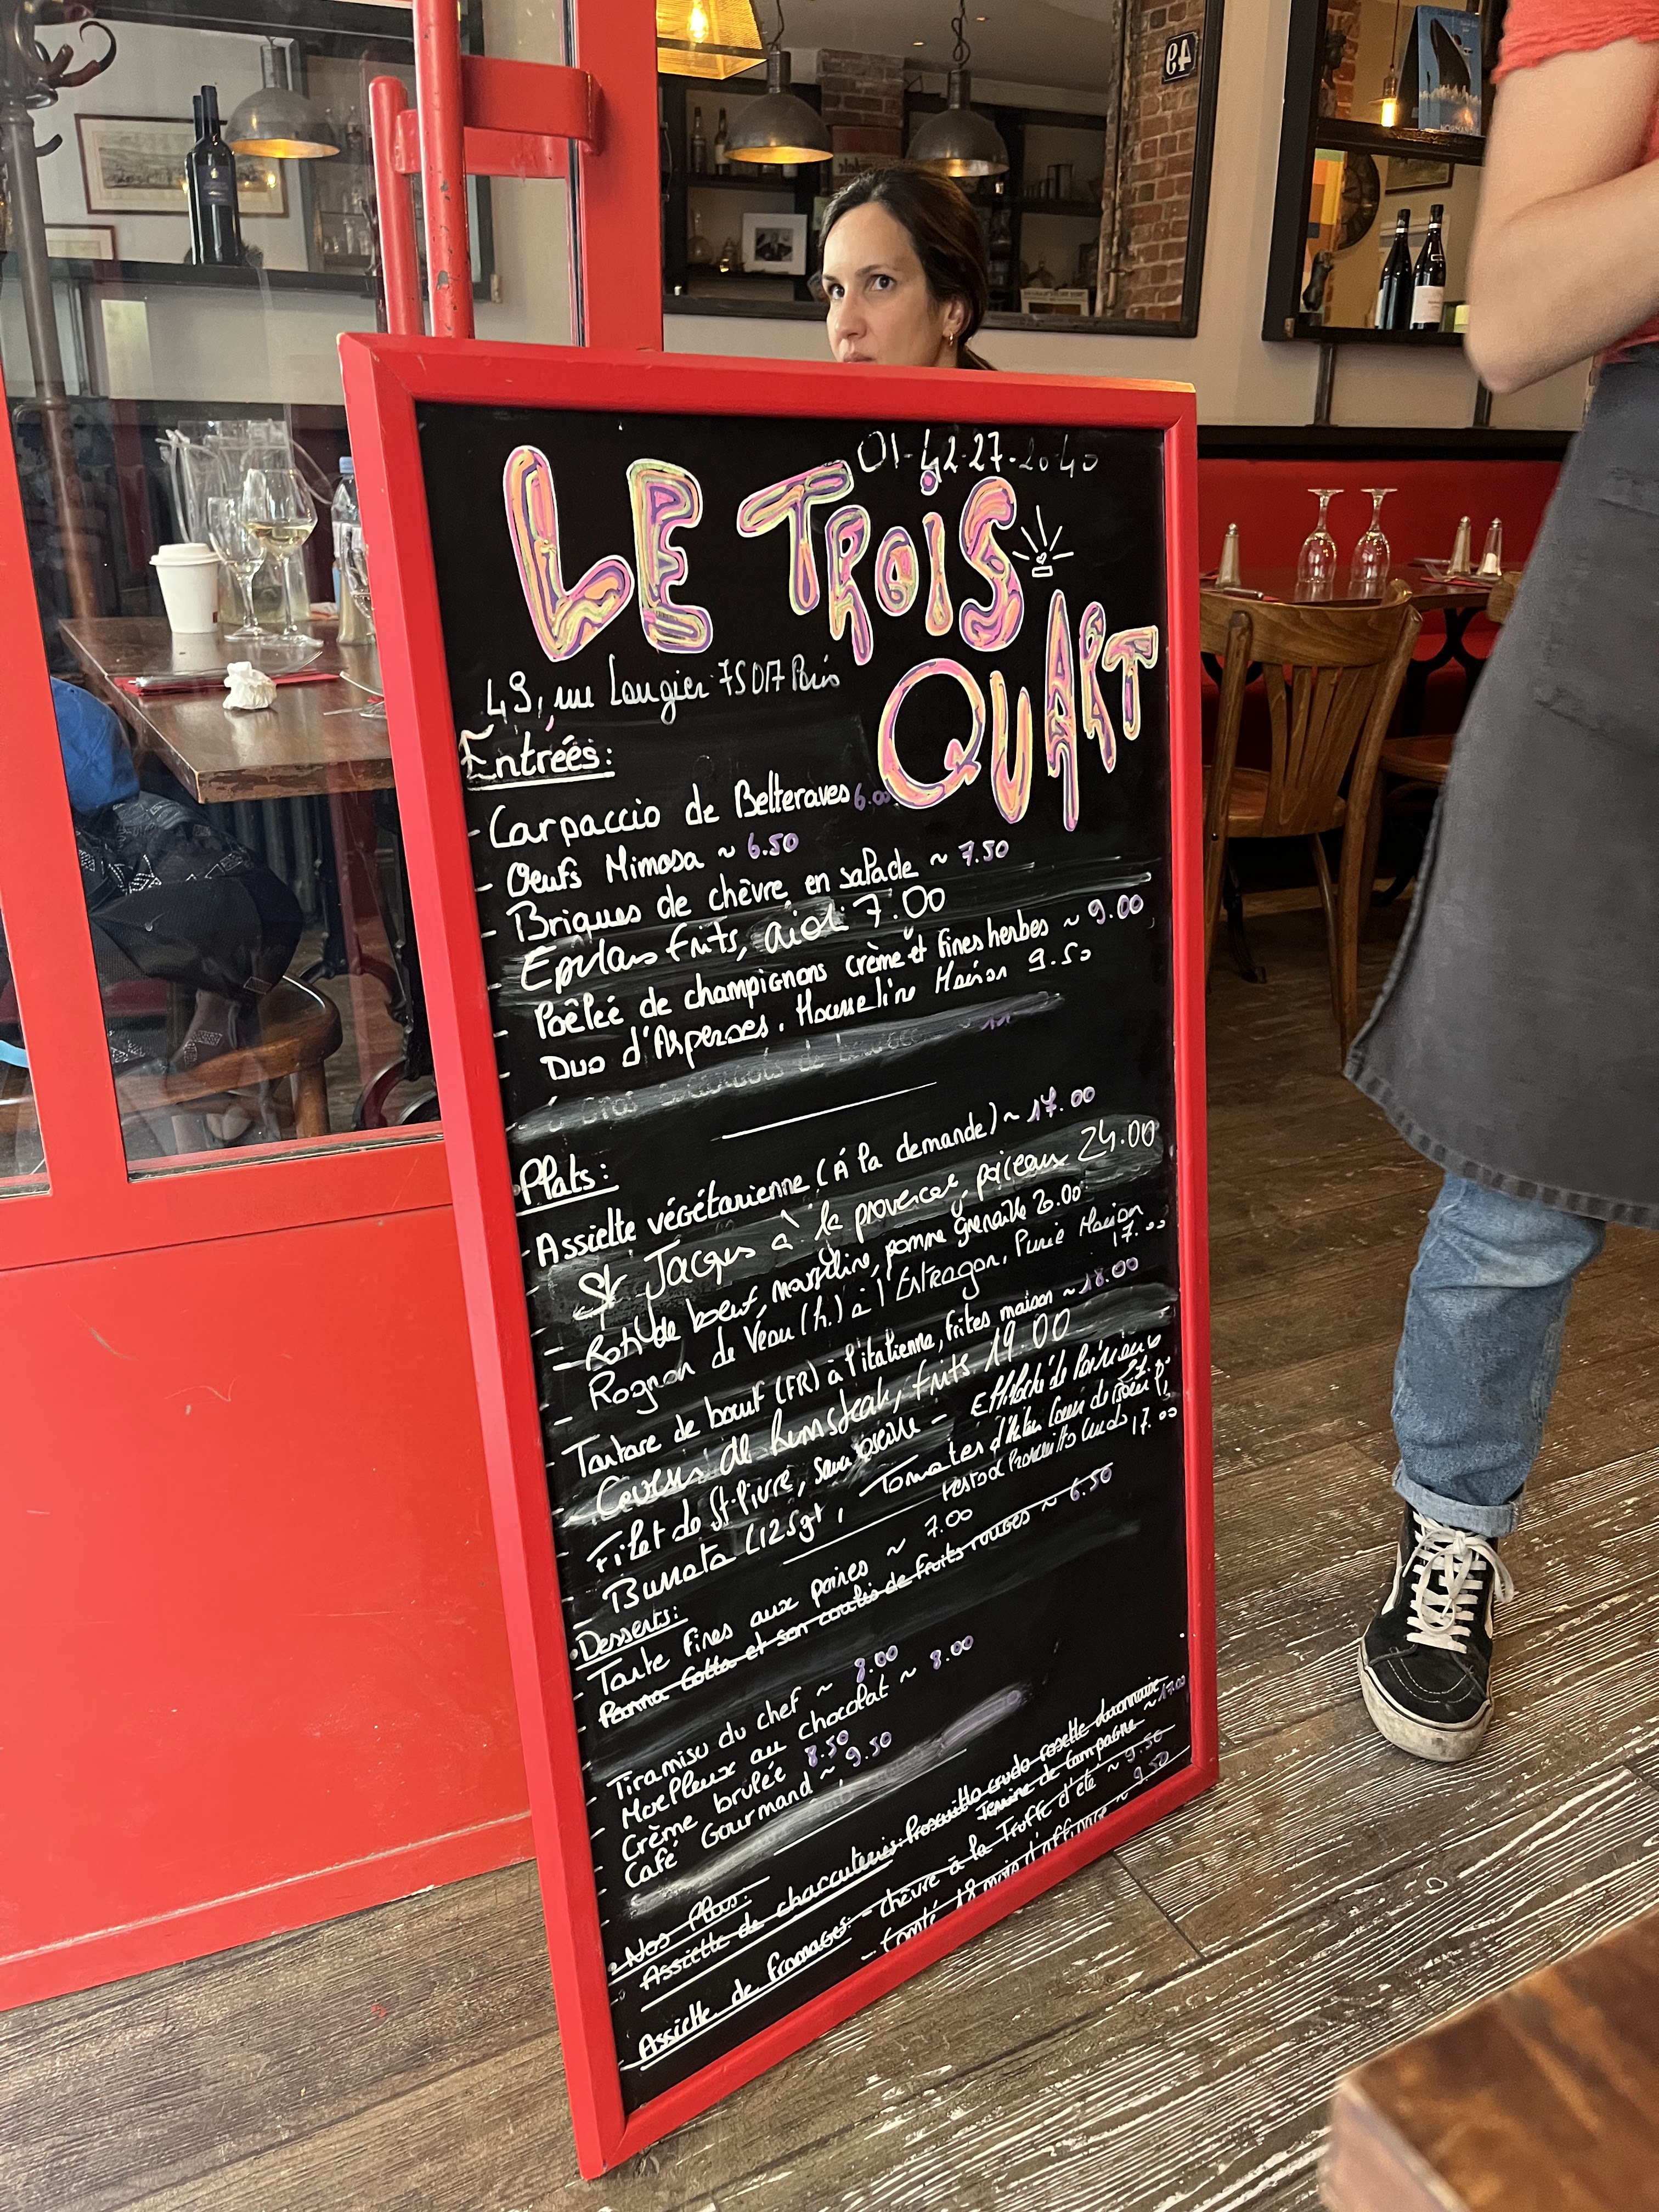 01-42-27-20-40
LE TROIS
QUART
49, rue Laugier 75017 Paris
Entrées:
- Carpaccio de Betteraves 6.00
- Oeufs Mimosa ~ 6.50
- Briques de chèvre en salade ~ 7.50
- Eperlans frits, aioli 7.00
- Poêlée de champignons crème et fines herbes ~ 9.00
- Duo d'Asperges, Mousseline Maison 9.50
Plats:
- Assiette végétarienne (À la demande) ~ 17.00
- St Jacques à la provençal, 24.00
- Roti de boeuf, pomme grenaille 20.00
- Rognon de Veau (h.) à l'Estragon, Purée Maison
17.00
- Tartare de boeuf (FR) à l'italienne, frites maison ~ 18.00
- de rumsteak, frits 19.00
- Filet de St-Pierre, sauce oseille -
- Burrata (125gr),
17.00
Desserts:
- Tarte fines aux poires ~ 7.00
- Panna Cotta et son coulis de fruits rouges ~ 6.50
- Tiramisu du chef ~ 8.00
- Moelleux au chocolat ~ 8.00
- Crème brûlée 8.50
- Café Gourmand ~ 9.50
Nos Plus:
Assiette de charcuteries: Prosciutto crudo rosette
Terrine de Campagne ~ 17.00
Assiette de fromages: - chèvre à la Truffe d'été ~ 9.50
- Comté 18 mois d'affinage ~ 9.50
49